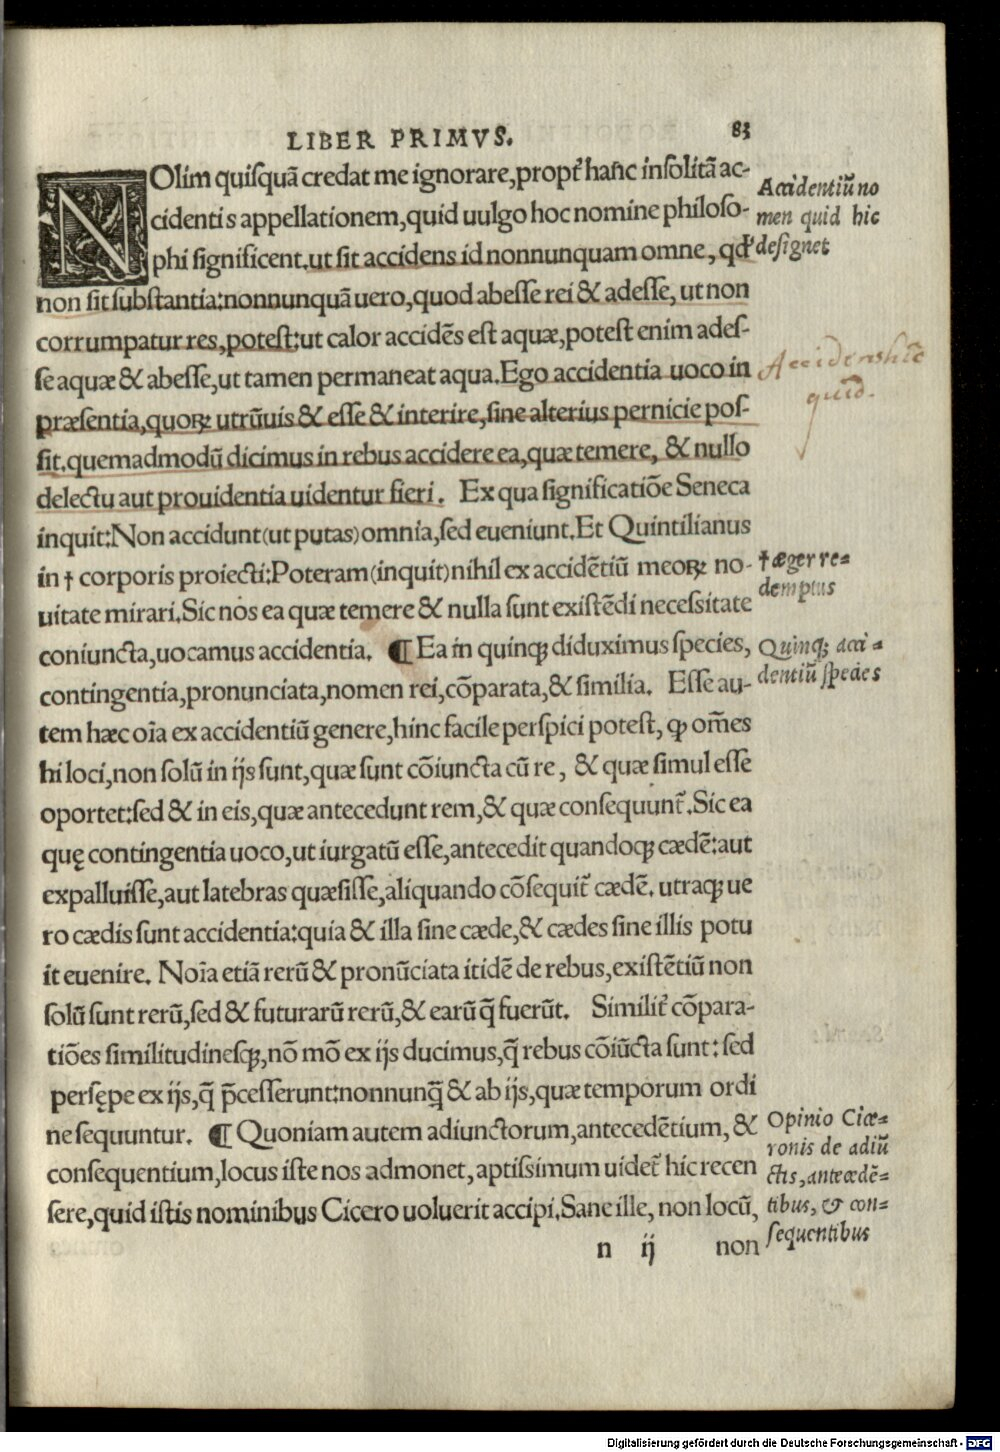 LIBER PRIMVS.
83
NOlim quisquã credat me ignorare,propt᷑ hãc insolitã ac-
cidentis appellationem,quid uulgo hoc nomine philoso-
phi significent.ut sit accidens id nonnunquam omne, qđ
non sit substantia:nonnunquã uero,quod abesse rei & adesse, ut non
corrumpatur res,potest:ut calor accidẽs est aquæ,potest enim ades-
se aquæ & abesse,ut tamen permaneat aqua.Ego accidentia uoco in
præsentia,quoꝝ utrũuis & esse & interire,sine alterius pernicie pos-
sit.quemadmodũ dicimus in rebus accidere ea,quæ temere, & nullo
delectu aut prouidentia uidentur fieri. Ex qua significatiõe Seneca
inquit:Non accidunt(ut putas)omnia,sed eueniunt.Et Quintilianus
in † corporis proiecti:Poteram(inquit)nihil ex accidẽtiũ meoꝝ no-
uitate mirari.Sic nos ea quæ temere & nulla sunt existẽdi necessitate
coniuncta,uocamus accidentia. ¶ Ea in quinqꝫ diduximus species,
contingentia,pronunciata,nomen rei,cõparata,& similia. Esse au-
tem hæc oĩa ex accidentiũ genere,hinc facile perspici potest, ꝙ om̃es
hi loci,non solũ in ijs sunt,quæ sunt cõiuncta cũ re, & quæ simul esse
oportet:sed & in eis,quæ antecedunt rem,& quæ consequunt᷑.Sic ea
quę contingentia uoco,ut iurgatũ esse,antecedit quandoqꝫ cædẽ:aut
expalluisse,aut latebras quæsisse,aliquando cõsequit᷑ cædẽ. utraqꝫ ue
ro cædis sunt accidentia:quia & illa sine cæde,& cædes sine illis potu
it euenire. Noĩa etiã rerũ & pronũciata itidẽ de rebus,existẽtiũ non
solũ sunt rerũ,sed & futurarũ rerũ,& earũ q̃ fuerũt. Similit᷑ cõpara-
tiões similitudinesqꝫ,nõ mõ ex ijs ducimus,q̃ rebus cõiũcta sunt: sed
persępe ex ijs,q̃ p̃cesserunt:nonnunq̃ & ab ijs,quæ temporum ordi
ne sequuntur. ¶ Quoniam autem adiunctorum,antecedẽtium, &
consequentium,locus iste nos admonet, aptissimum uidet᷑ hic recen
sere,quid istis nominibus Cicero uoluerit accipi.Sane ille, non locũ,
n ij non
Accidentiũ no
men quid hic
designet
Accidens hic
quid.
† æger re=
demptus
Quinqꝫ acci=
dentiũ species
Opinio Cice=
ronis de adiũ
ctis, antecedẽ=
tibus, & con=
sequentibus
Digitalisierung gefördert durch die Deutsche Forschungsgemeinschaft - DFG